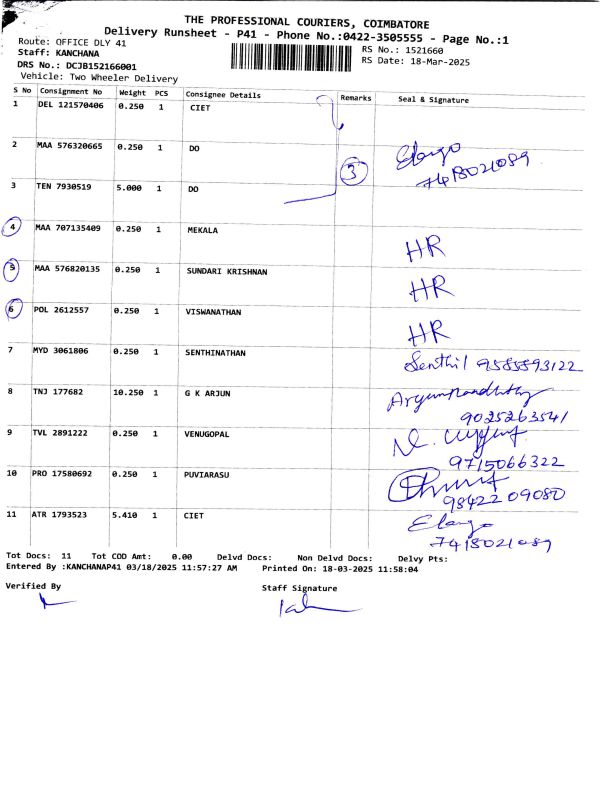 THE PROFESSIONAL COURIERS, COIMBATORE
Delivery Runsheet - P41 - Phone No.:0422-3505555 - Page No.:1
Route: OFFICE DLY 41
RS No.: 1521660
Staff: KANCHANA
RS Date: 18-Mar-2025
DRS No.: DCJB152166001
Vehicle: Two Wheeler Delivery
S No Consignment No Weight PCS Consignee Details Remarks Seal & Signature
1 DEL 121570406 0.250 1 CIET
2 MAA 576320665 0.250 1 DO Elango
3 7418021089
3 TEN 7930519 5.000 1 DO
4 MAA 707135409 0.250 1 MEKALA HR
5 MAA 576820135 0.250 1 SUNDARI KRISHNAN HR
6 POL 2612557 0.250 1 VISWANATHAN HR
7 MYD 3061806 0.250 1 SENTHINATHAN Senthil 9585593122
8 TNJ 177682 10.250 1 G K ARJUN
9025263541
9 TVL 2891222 0.250 1 VENUGOPAL
9715066322
10 PRO 17580692 0.250 1 PUVIARASU
9842209080
11 ATR 1793523 5.410 1 CIET Elango
7418021089
Tot Docs: 11 Tot COD Amt: 0.00 Delvd Docs: Non Delvd Docs: Delvy Pts:
Entered By :KANCHANAP41 03/18/2025 11:57:27 AM Printed On: 18-03-2025 11:58:04
Verified By Staff Signature